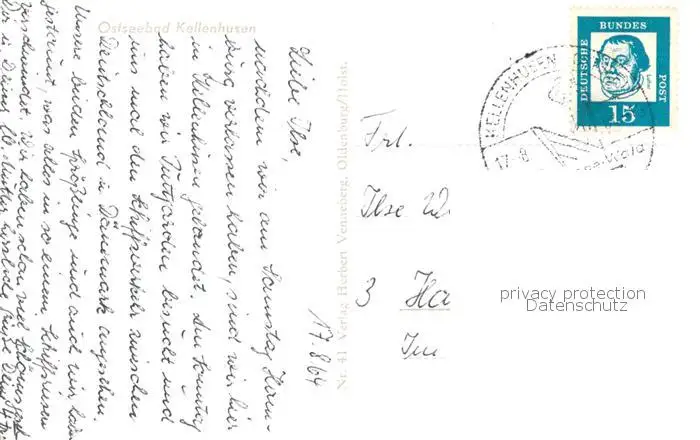 Ostseebad Kellenhusen
17.8.64
Liebe Ilse,
nachdem wir am Samstag Ham-
burg verlassen haben, sind wir hier
in Kellenhusen gelandet. Am Sonntag
haben wir Puttgarden besucht und
uns mal den Schiffverkehr zwischen
Deutschland u. Dänemark angesehen.
Unsere beiden Sprößlinge und auch wir haben
gestaunt, was alles in so einem Schiffsriesen
verschwindet. Wir haben schon viel
Nr. 41 Verlag Herbert Venneberg, Oldenburg/Holst.
DEUTSCHE
BUNDES
POST
15
Luther
KELLENHUSEN
17.-8
Frl.
Ilse W
3 Ha
Im
privacy protection
Datenschutz